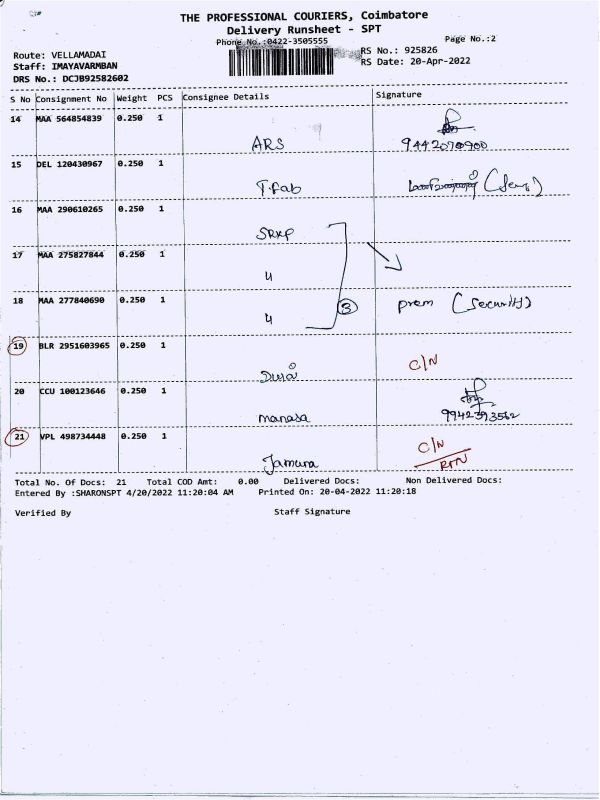 THE PROFESSIONAL COURIERS, Coimbatore
Delivery Runsheet - SPT
Phone No.:0422-3505555
Page No.:2
Route: VELLAMADAI
RS No.: 925826
Staff: IMAYAVARMBAN
RS Date: 20-Apr-2022
DRS No.: DCJB92582602
S No Consignment No Weight PCS Consignee Details Signature
14 MAA 564854839 0.250 1
ARS 9442070900
15 DEL 120430967 0.250 1
T.fab
16 MAA 290610265 0.250 1
SRKP
17 MAA 275827844 0.250 1
4
18 MAA 277840690 0.250 1
4 3 prem (Security)
19 BLR 2951603965 0.250 1
C/N
20 CCU 100123646 0.250 1
manasa 9942393562
21 VPL 498734448 0.250 1
Jamuna C/N
RTN
Total No. Of Docs: 21 Total COD Amt: 0.00 Delivered Docs: Non Delivered Docs:
Entered By :SHARONSPT 4/20/2022 11:20:04 AM Printed On: 20-04-2022 11:20:18
Verified By Staff Signature